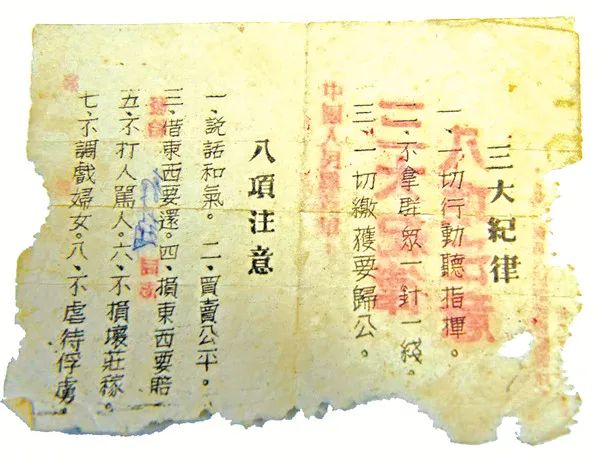 三大紀律
一、一切行動聽指揮。
二、不拿群眾一針一綫。
三、一切繳獲要歸公。
八項注意
一、説話和氣。二、買賣公平。
三、借東西要還。四、損東西要賠
五、不打人駡人。六、不損壞莊稼。
七、不調戲婦女。八、不虐待俘虜。